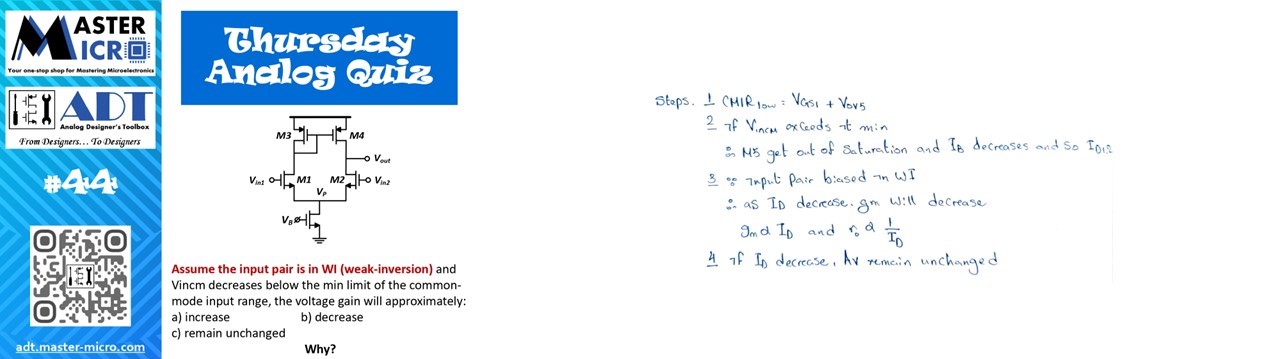 MASTER
MICRO
Your one-stop shop for Mastering Microelectronics
ADT
Analog Designer's Toolbox
From Designers… To Designers
#44
adt.master-micro.com
Thursday
Analog Quiz
M3
M4
Vout
Vin1
M1
M2
Vin2
VP
VB
Assume the input pair is in WI (weak-inversion) and
Vincm decreases below the min limit of the common-
mode input range, the voltage gain will approximately:
a) increase b) decrease
c) remain unchanged
Why?
Steps. 1 CMIR low = VGS1 + Vov5
2 if VinCM exceeds it min
∴ M5 get out of saturation and IB decreases and so ID1,2
3 ∵ input pair biased in WI
∴ as ID decrease, gm will decrease
gm α ID and ro α 1/ID
4 if ID decrease, Av remain unchanged